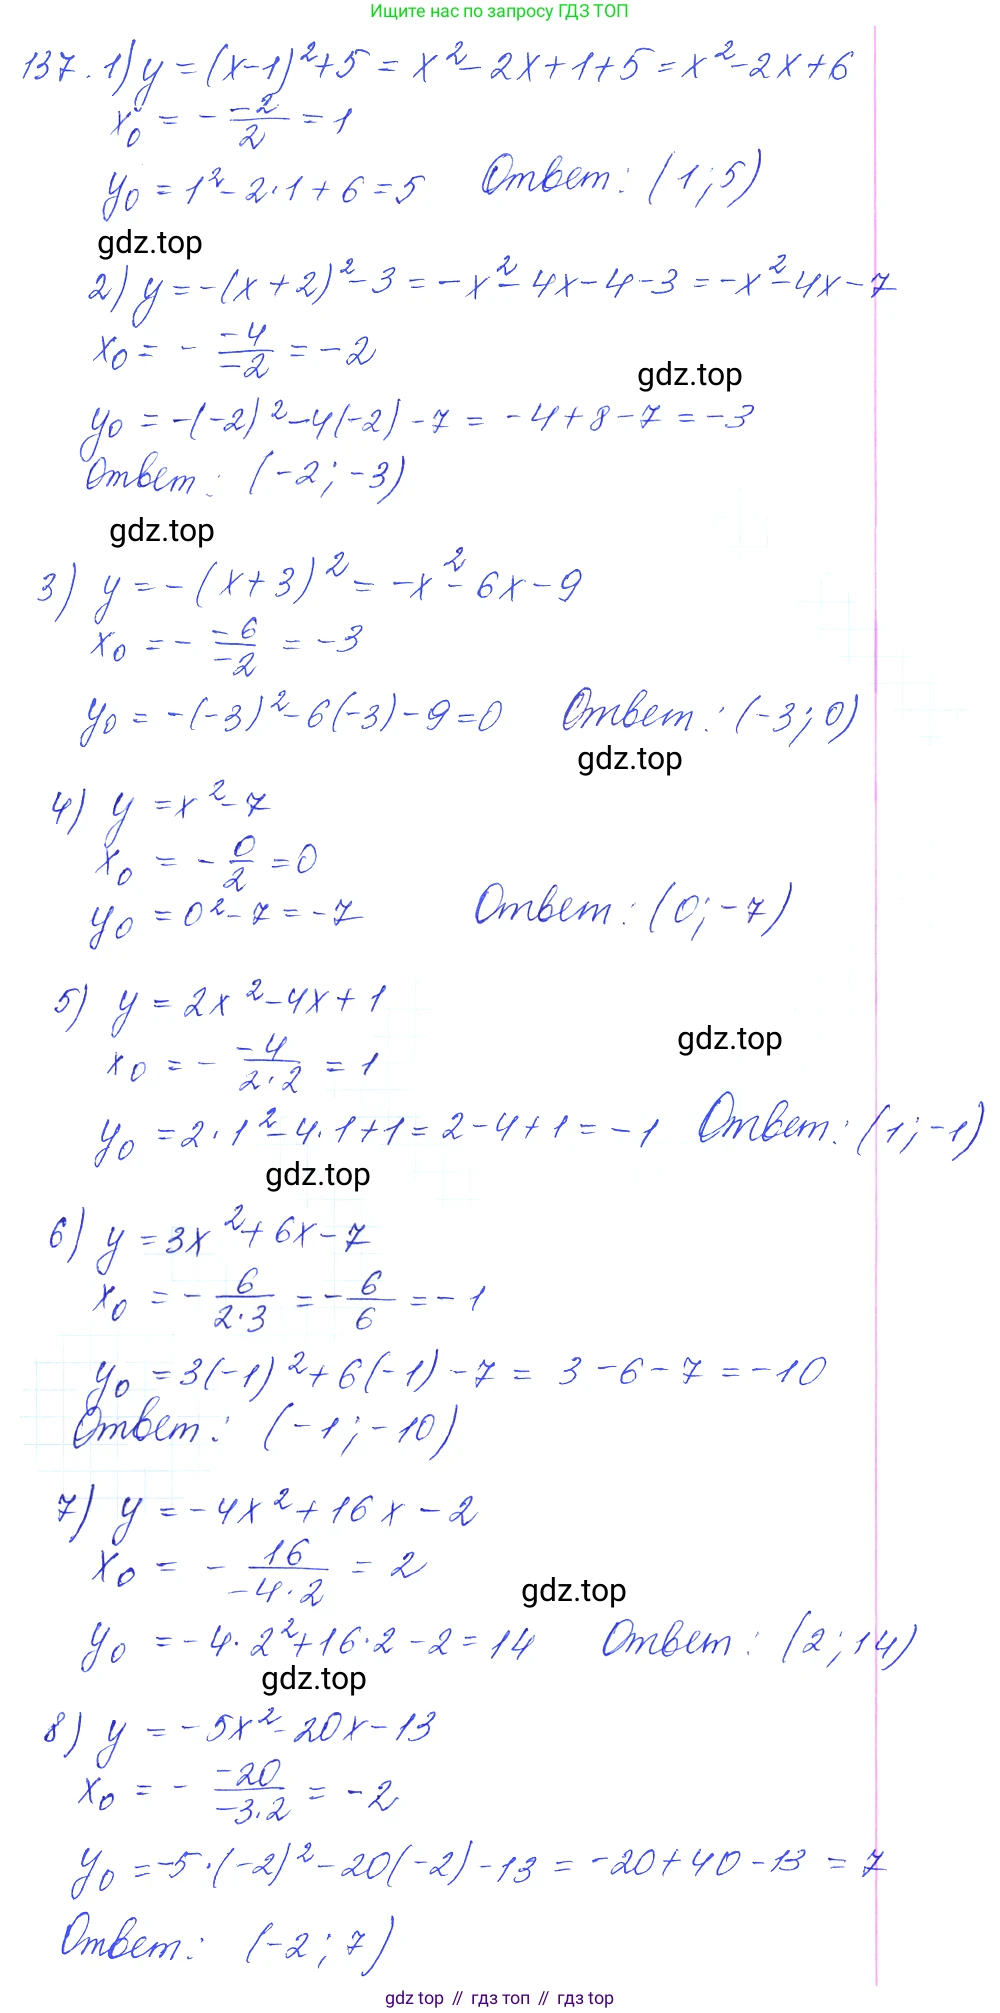 Ищите нас по запросу ГДЗ ТОП
137. 1) y = (x-1)² + 5 = x² - 2x + 1 + 5 = x² - 2x + 6
x₀ = - -2/2 = 1
y₀ = 1² - 2·1 + 6 = 5 Ответ: (1; 5)
gdz.top
2) y = -(x+2)² - 3 = -x² - 4x - 4 - 3 = -x² - 4x - 7
x₀ = - -4/-2 = -2
gdz.top
y₀ = -(-2)² - 4(-2) - 7 = -4 + 8 - 7 = -3
Ответ: (-2; -3)
gdz.top
3) y = -(x+3)² = -x² - 6x - 9
x₀ = - -6/-2 = -3
y₀ = -(-3)² - 6(-3) - 9 = 0 Ответ: (-3; 0)
gdz.top
4) y = x² - 7
x₀ = - 0/2 = 0
y₀ = 0² - 7 = -7 Ответ: (0; -7)
5) y = 2x² - 4x + 1
gdz.top
x₀ = - -4/2·2 = 1
y₀ = 2·1² - 4·1 + 1 = 2 - 4 + 1 = -1 Ответ: (1; -1)
gdz.top
6) y = 3x² + 6x - 7
x₀ = - 6/2·3 = - 6/6 = -1
y₀ = 3(-1)² + 6(-1) - 7 = 3 - 6 - 7 = -10
Ответ: (-1; -10)
7) y = -4x² + 16x - 2
x₀ = - 16/-4·2 = 2
gdz.top
y₀ = -4·2² + 16·2 - 2 = 14 Ответ: (2; 14)
gdz.top
8) y = -5x² - 20x - 13
x₀ = - -20/-3·2 = -2
y₀ = -5·(-2)² - 20(-2) - 13 = -20 + 40 - 13 = 7
Ответ: (-2; 7)
gdz top // гдз топ // гдз top